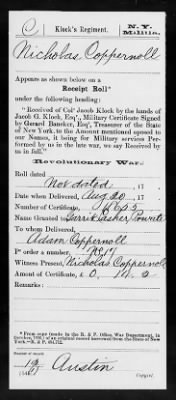 C
Klock's Regiment.
N. Y.
Militia.
Nicholas Coppernoll
Appears as shown below on a
Receipt Roll*
under the following heading:
"Received of Col° Jacob Klock by the hands of
Jacob G. Klock, Esq'., Military Certificates Signed
by Gerard Bancker, Esq', Treasurer of the State of
New York, to the Amount mentioned oposed to
our Names, it being for Military Services Per-
formed by us in the late war, we say Received by
us in full."
Revolutionary War.
Roll dated
Not dated, 17
Date when Delivered, Aug 20, 17
Number of Certificate,
Name Granted
To whom Delivered,
Adam Coppernoll
P' order a number,
Witness Present, Nicholas Coppernoll
Amount of Certificate, £ 0.
Remarks:
*From copy (made in the R. & P. Office, War Department, in
of an original record borrowed from the State of New
York.—R. & P.
Number of record:
Austin
Copyist.